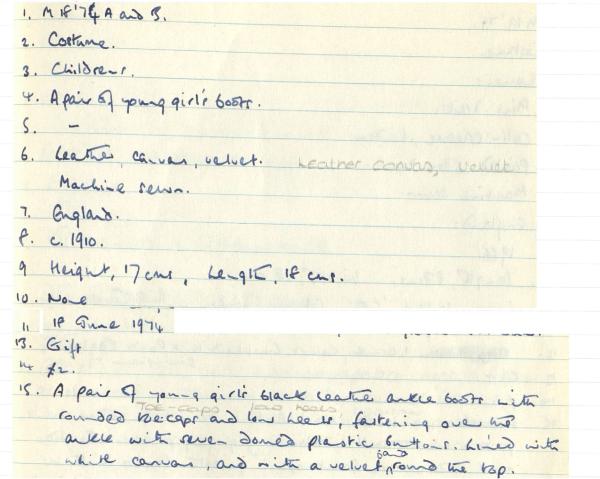 1. M 18'74 A and B.
2. Costume.
3. Childrens.
4. A pair of young girl's boots.
5. –
6. Leather, canvas, velvet. Leather canvas, velvet
Machine sewn.
7. England.
8. c. 1910.
9 Height, 17 cms, Length, 18 cms.
10. None
11 18 June 1974
13. Gift
14 £2.
15. A pair of young girl's black leather ankle boots with
toe-caps low heels
rounded toecaps and low heels, fastening over the
ankle with seven domed plastic buttons. Lined with
band
white canvas, and with a velvet round the top.